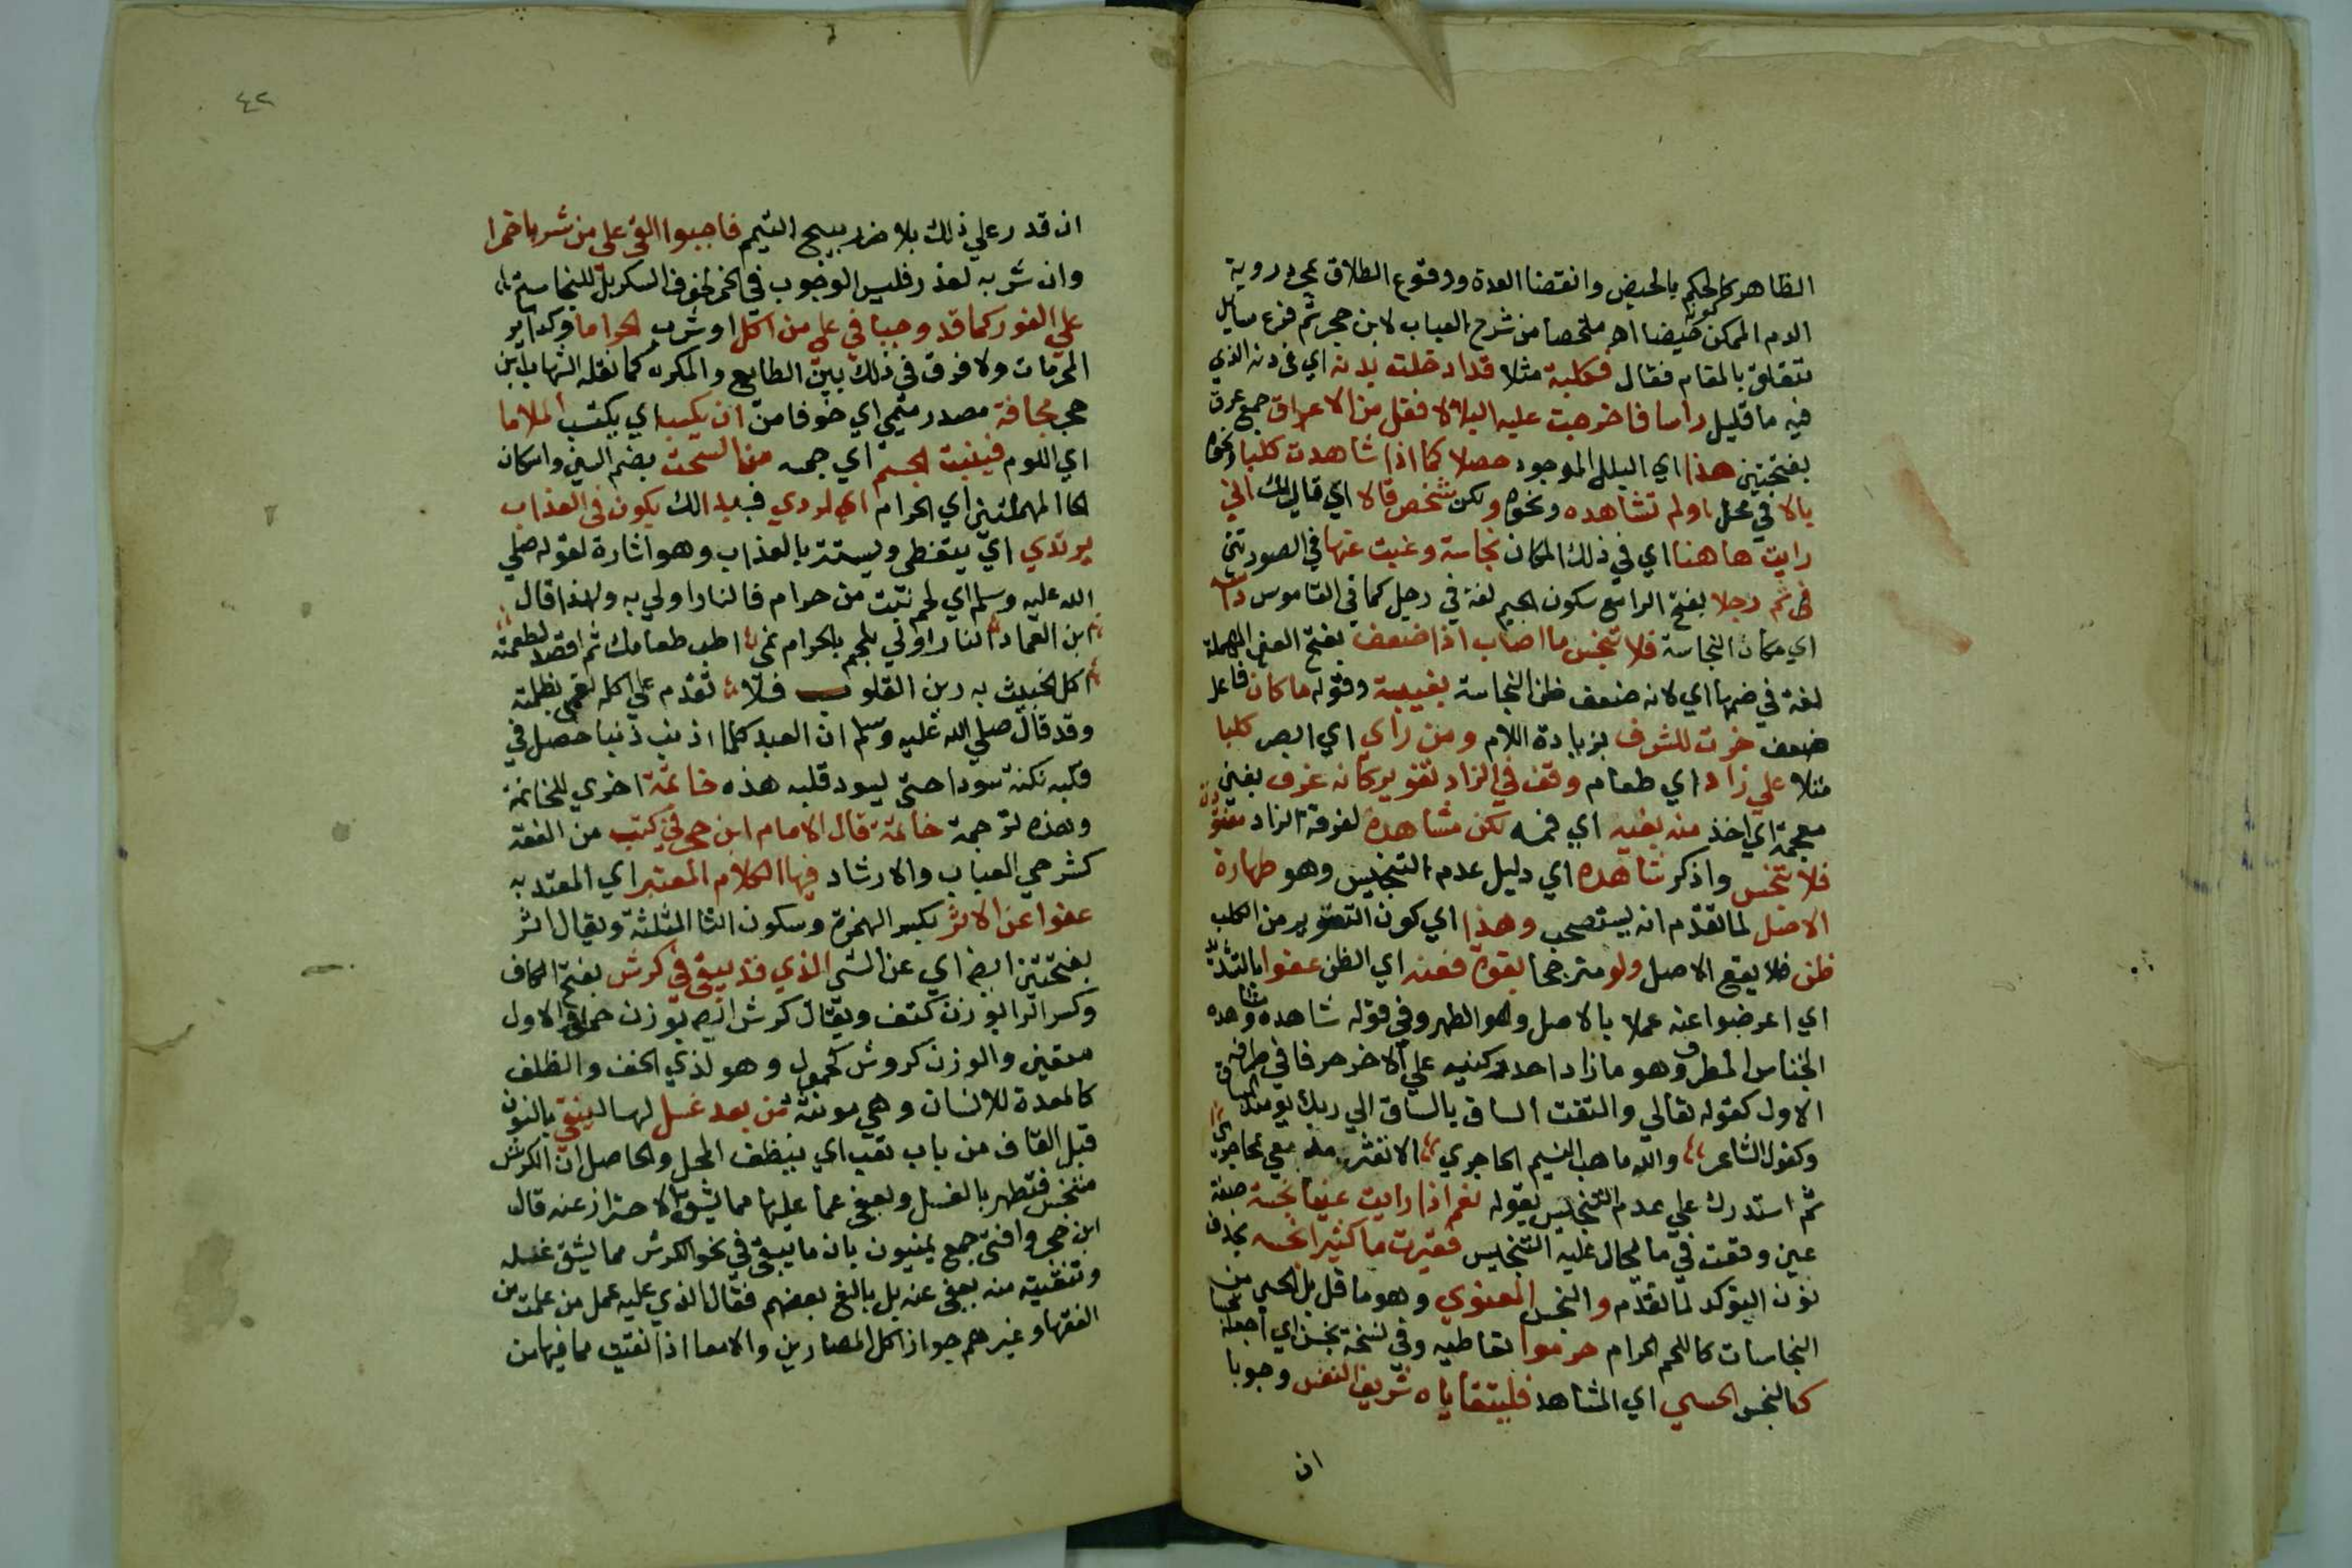 الظاهر كالحكم بالحيض وانقضا العدة ووقوع الطلاق بمجرد روية
الدم الممكن كونه حيضا اه ملخصا من شرح العباب لابن حجر ثم فرع مسايل
تتعلق بالمقام فقال فكلبة مثلا قد ادخلت بدنه اي في دنه الذي
فيه ما قليل راسا فاخرجت عليه البلا لا فقل من الاعراق جمع عرق
بفتحتين هذا اي البلل الموجود حصلا كما اذا شاهدت كلبا ونحوه
بالا في محل او لم تشاهده ونحوه ولكن شخص قالا اي قال لك اني
رايت هاهنا اي في ذلك المكان نجاسة وغبت عنها في الصورتين
ثم رجلا بفتح الرا مع سكون الجيم لغة في رجل كما في القاموس
اي مكان النجاسة فلا تنجس ما اصاب اذا ضعف بفتح العين المهملة
لغة في ضمها اي لانه ضعف ظن النجاسة بغيبة وقوله ما كان فاعل
ضعف خرت للشرف بزيادة اللام ومن راي اي ابصر كلبا
مثلا علي زاد اي طعام وقف في الزاد تقويركانه غرف بغين
معجمة اي اخذ منه بفيه اي فمه لكن مشاهدة لغرفة الزاد
فلا تنجس واذكر شاهده اي دليل عدم التنجيس وهو طهارة
الاصل لما تقدم انه يستصحب وهذا اي كون التقوير من الكلب
ظن فلا يقع الاصل ولو مترجحا بقوة فعنه اي الظن عفوا بالتشديد
اي اعرضوا عنه عملا بالاصل وهو الطهر وفي قوله شاهده وهذه
الجناس المطرف وهو ما زاد احد ركنيه علي الاخر حرفا في طرفه
الاول كقوله تعالي والتفت الساق بالساق الي ربك يومئذ المساق
وكقول الشاعر والله ما هب النسيم الحاجري الا تقثر معي محاجري
ثم استدرك علي عدم التنجيس بقوله نعم اذا رايت عينا نجسة صفة
عين وقعت في ما يحال عليه التنجيس فغيرت ما كثيرا نجسه بحذف
نون التوكد لما تقدم والنجس المعنوي وهو ما قل بل الحسي من
النجاسات كاللحم الحرام حرموا تعاطيه وفي نسخة نجسن اي اجعله نجسا
كالنجس الحسي اي المشاهد فليتقاياه شريف النفس وجوبا
ان
٤٢
ان قدر علي ذلك بلا ضرر يبيح التيمم فاجبوا القي علي من شربا خمرا
وان شربه لعذر فليس الوجوب في الخمر لخوف السكر بل للنجاسة
علي الفور كما قد وجبا في علي من اكل او شرب الحراما وكذا ير
المحرمات ولا فرق في ذلك بين الطايع والمكره كما نقله الشهاب ابن
حجر مخافة مصدر ميمي اي خوفا من ان يكسبه اي يكتسب الملاما
اي اللوم فينبت الجسم اي جسمه من السحت بضم السين واسكان
الحا المهملتين اي الحرام اي الردي فبذالك يكون في العذاب
يرتدي اي يتغطي ويستتر بالعذاب وهو اشارة لقوله صلي
الله عليه وسلم اي لحم نبت من حرام فالنار اولي به ولهذا قال
ابن العماد النار اولي بلحم بالحرام نمي اطب طعامك ثم اقصد لطعمته
اكل الخبيث به رين القلوب فلا تقدم علي اكله تعمي بظلمته
وقد قال صلي الله عليه وسلم ان العبد كلما اذنب ذنبا حصل في
قلبه نكتة سودا حتي يسود قلبه هذه خاتمة اخري للخاتمة
وهذه ترجمة خاتمة قال الامام ابن حجر في كتب من الفقه
كشرحي العباب والارشاد فيها الكلام المعتبر اي المعتد به
عفوا عن الاثر بكسر الهمزة وسكون الثا المثلثة ويقال اثر
بفتحتين ايضا اي عن الشي الذي قد يبقي في كرش بفتح الكاف
وكسر الرا بوزن كتف ويقال كرش ايض بوزن حمل والاول
معقين والوزن كروش كحمول وهو لذي الخف والظلف
كالمعدة للانسان وهي مونثة من بعد غسل لها لينقي بالنون
قبل القاف من باب تعب اي ينظف المحل والحاصل ان الكرش
متنجس فتطهر بالغسل ويعفي عما عليها مما يشق الاحتراز عنه قال
ابن حجر وافتي جمع يمنيون بان ما يبقي في نحو الكرش مما يشق غسله
وتنقيته منه يعفي عنه بل بالغ بعضهم فقال الذي عليه عمل من علمت من
الفقها وغيرهم جواز اكل المصارين والامعا اذا نقيت مما فيها من